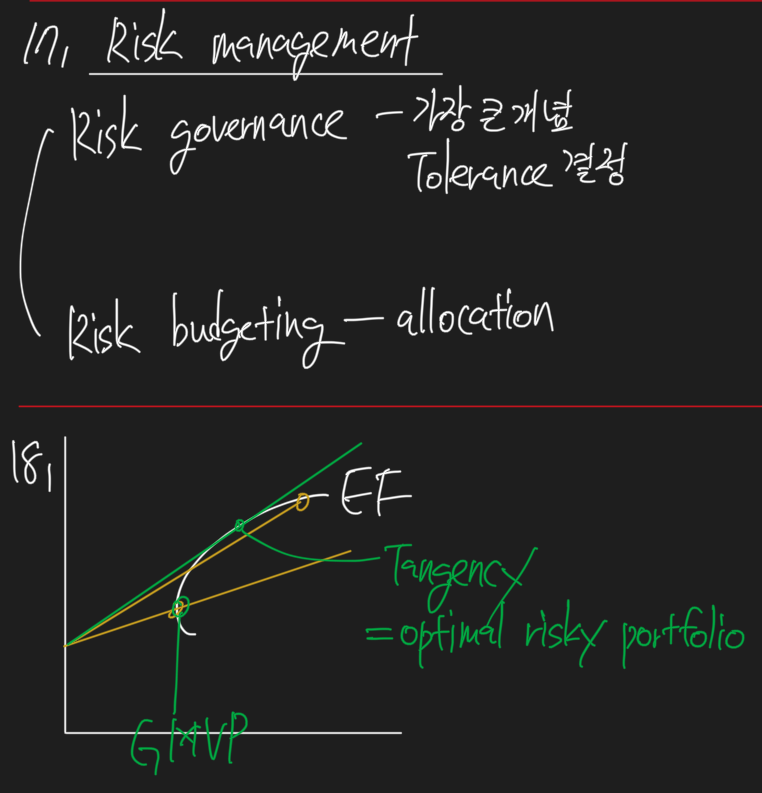 17, Risk management
Risk governance - 가장 큰 개념
Tolerance 결정
Risk budgeting - allocation
18,
EF
Tangency
= optimal risky portfolio
GMVP